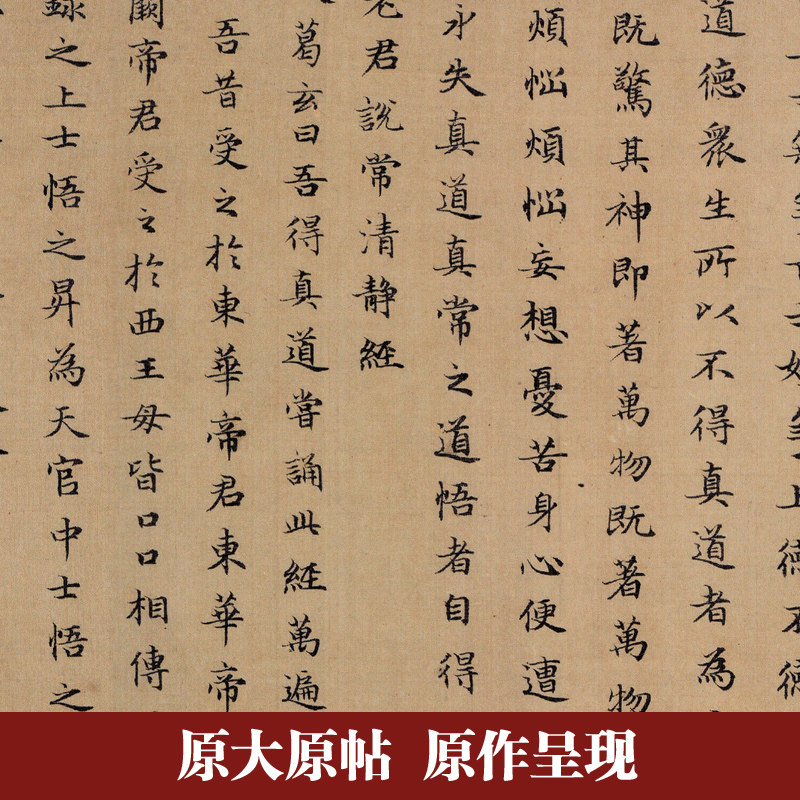 士無爭下士好爭上德不德
道德衆生所以不得真道者為
既驚其神即著萬物既著萬物
煩惱煩惱妄想憂苦身心便遭
永失真道真常之道悟者自得
老君說常清靜經
葛玄曰吾得真道嘗誦此經萬遍
吾昔受之於東華帝君東華帝
闕帝君受之於西王母皆口口相傳
錄之上士悟之昇為天官中士悟之
原大原帖 原作呈现